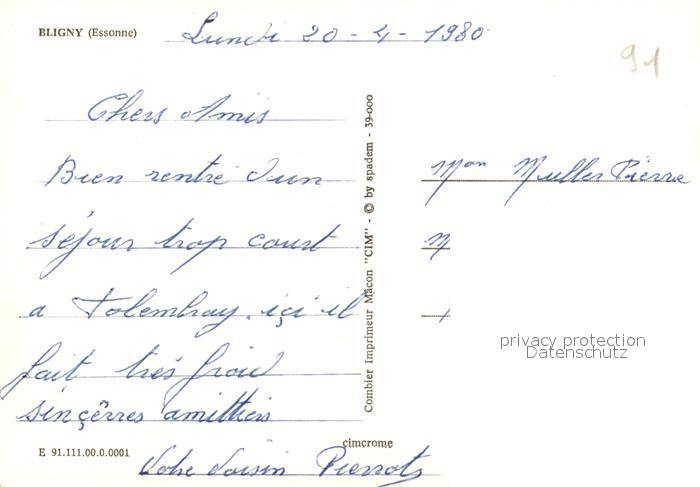 BLIGNY (Essonne)
Lundi 20-4-1980
91
Chers Amis
Bien rentré d'un
séjour trop court
a Tolembray. içi il
fait très froid
sinçêrres amittiés
Votre Voisin Pierrot
E 91.111.00.0.0001
cimcrome
Combier Imprimeur Mâcon "CIM" - © by spadem - 39-000
Mon Muller Pierre
M
privacy protection
Datenschutz